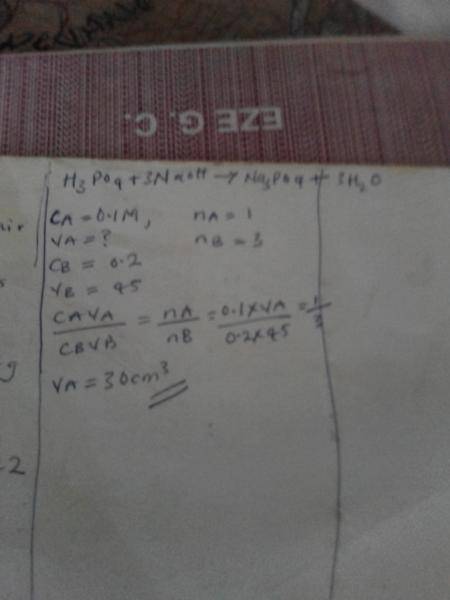 EZE G. C.
H₃PO₄ + 3NaOH → Na₃PO₄ + 3H₂O
CA = 0.1M, nA = 1
VA = ? nB = 3
CB = 0.2
VB = 45
CAVA / CBVB = nA / nB = 0.1×VA / 0.2×45 = 1 / 3
VA = 30cm³